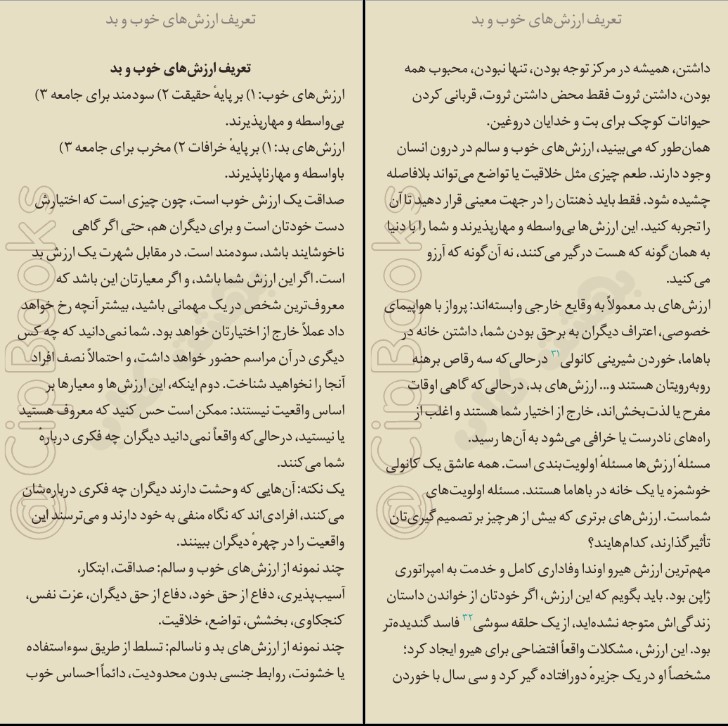 تعریف ارزش‌های خوب و بد
تعریف ارزش‌های خوب و بد
ارزش‌های خوب: ۱) بر پایهٔ حقیقت ۲) سودمند برای جامعه ۳)
بی‌واسطه و مهارپذیرند.
ارزش‌های بد: ۱) بر پایهٔ خرافات ۲) مخرب برای جامعه ۳)
باواسطه و مهارناپذیرند.
صداقت یک ارزش خوب است، چون چیزی است که اختیارش
دست خودتان است و برای دیگران هم، حتی اگر گاهی
ناخوشایند باشد، سودمند است. در مقابل شهرت یک ارزش بد
است. اگر این ارزش شما باشد، و اگر معیارتان این باشد که
معروف‌ترین شخص در یک مهمانی باشید، بیشتر آنچه رخ خواهد
داد عملاً خارج از اختیارتان خواهد بود. شما نمی‌دانید که چه کس
دیگری در آن مراسم حضور خواهد داشت، و احتمالاً نصف افراد
آنجا را نخواهید شناخت. دوم اینکه، این ارزش‌ها و معیارها بر
اساس واقعیت نیستند: ممکن است حس کنید که معروف هستید
یا نیستید، درحالی‌که واقعاً نمی‌دانید دیگران چه فکری دربارهٔ
شما می‌کنند.
یک نکته: آن‌هایی که وحشت دارند دیگران چه فکری درباره‌شان
می‌کنند، افرادی‌اند که نگاه منفی به خود دارند و می‌ترسند این
واقعیت را در چهرهٔ دیگران ببینند.
چند نمونه از ارزش‌های خوب و سالم: صداقت، ابتکار،
آسیب‌پذیری، دفاع از حق خود، دفاع از حق دیگران، عزت نفس،
کنجکاوی، بخشش، تواضع، خلاقیت.
چند نمونه از ارزش‌های بد و ناسالم: تسلط از طریق سوءاستفاده
یا خشونت، روابط جنسی بدون محدودیت، دائماً احساس خوب
@CipBooks
تعریف ارزش‌های خوب و بد
داشتن، همیشه در مرکز توجه بودن، تنها نبودن، محبوب همه
بودن، داشتن ثروت فقط محض داشتن ثروت، قربانی کردن
حیوانات کوچک برای بت و خدایان دروغین.
همان‌طور که می‌بینید، ارزش‌های خوب و سالم در درون انسان
وجود دارند. طعم چیزی مثل خلاقیت یا تواضع می‌تواند بلافاصله
چشیده شود. فقط باید ذهنتان را در جهت معینی قرار دهید تا آن
را تجربه کنید. این ارزش‌ها بی‌واسطه و مهارپذیرند و شما را با دنیا
به همان گونه که هست درگیر می‌کنند، نه آن گونه که آرزو
می‌کنید.
ارزش‌های بد معمولاً به وقایع خارجی وابسته‌اند: پرواز با هواپیمای
خصوصی، اعتراف دیگران به برحق بودن شما، داشتن خانه در
باهاما، خوردن شیرینی کانولی۳۱ درحالی‌که سه رقاص برهنه
روبه‌رویتان هستند و... ارزش‌های بد، درحالی‌که گاهی اوقات
مفرح یا لذت‌بخش‌اند، خارج از اختیار شما هستند و اغلب از
راه‌های نادرست یا خرافی می‌شود به آن‌ها رسید.
مسئلهٔ ارزش‌ها مسئلهٔ اولویت‌بندی است. همه عاشق یک کانولی
خوشمزه یا یک خانه در باهاما هستند. مسئله اولویت‌های
شماست. ارزش‌های برتری که بیش از هرچیز بر تصمیم‌گیری‌تان
تأثیر گذارند، کدام‌هایند؟
مهم‌ترین ارزش هیرو اوندا وفاداری کامل و خدمت به امپراتوری
ژاپن بود. باید بگویم که این ارزش، اگر خودتان از خواندن داستان
زندگی‌اش متوجه نشده‌اید، از یک حلقه سوشی۳۲ فاسد گندیده‌تر
بود. این ارزش، مشکلات واقعاً افتضاحی برای هیرو ایجاد کرد؛
مشخصاً او در یک جزیرهٔ دورافتاده گیر کرد و سی سال با خوردن
@CipBooks